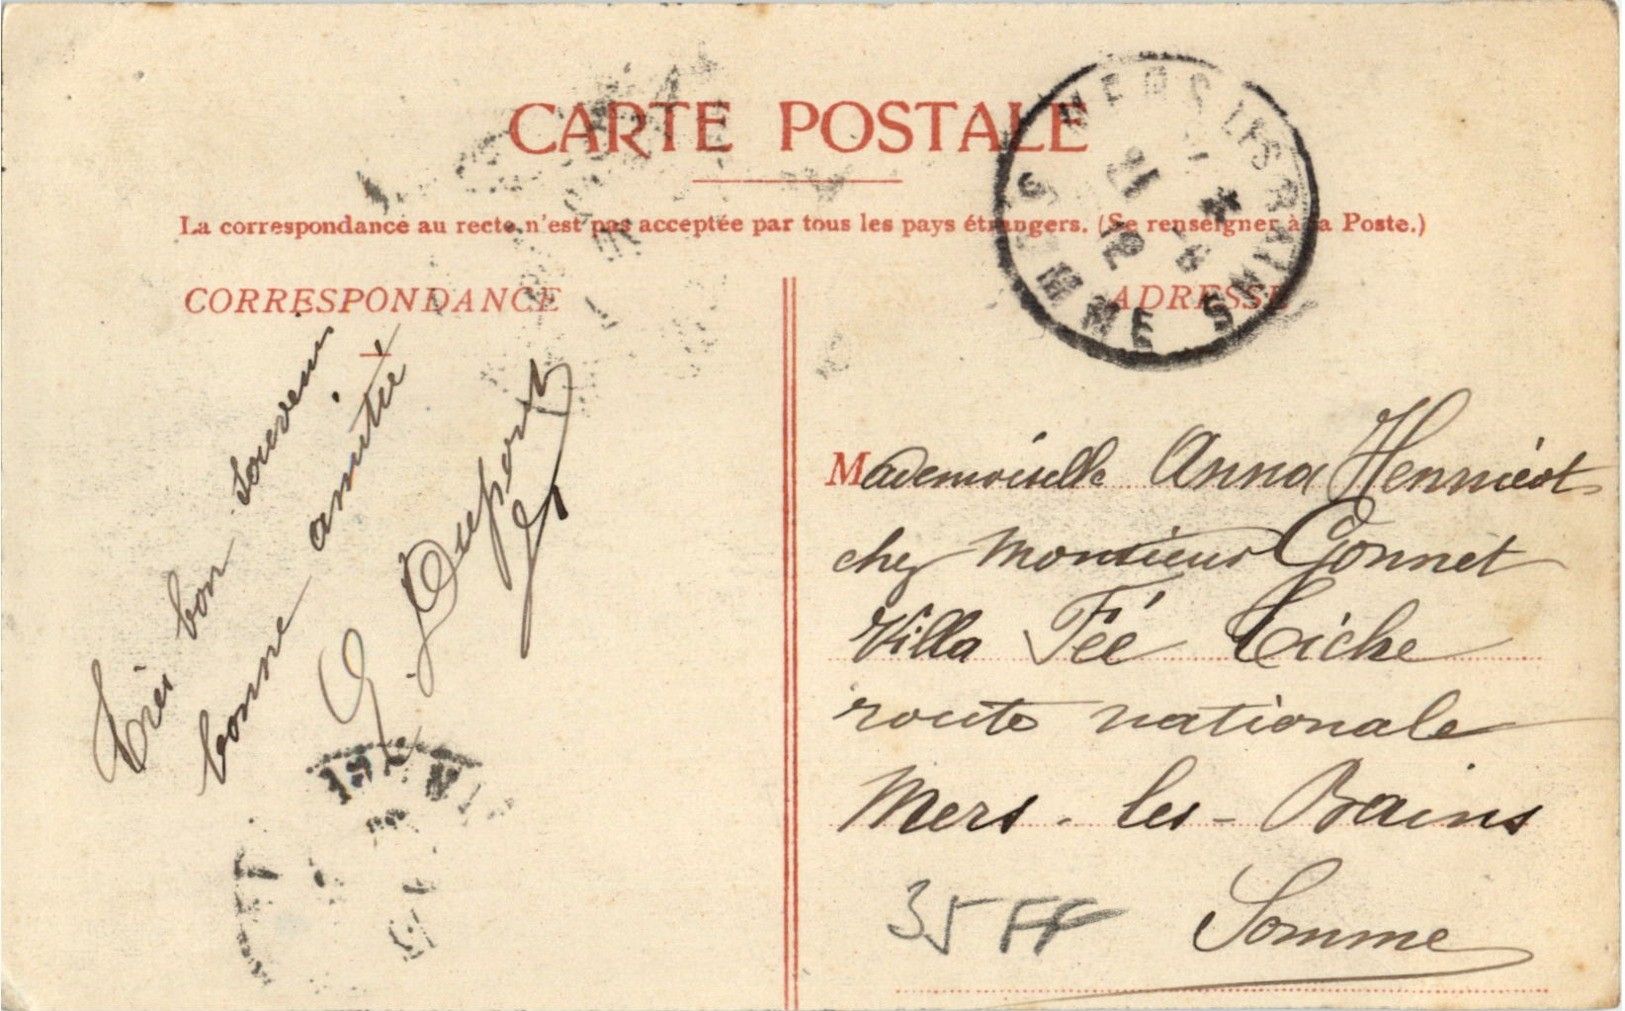 CARTE POSTALE
La correspondance au recto n'est pas acceptée par tous les pays étrangers. (Se renseigner à la Poste.)
CORRESPONDANCE
Très bon souvenir
bonne amitié
G. Duport
ADRESSE
MERS LES BAINS
SOMME
Mademoiselle Anna Henriéot
chez Monsieur Gonnet
Villa Fée Liche
route nationale
Mers-les-Bains
Somme
35 FF